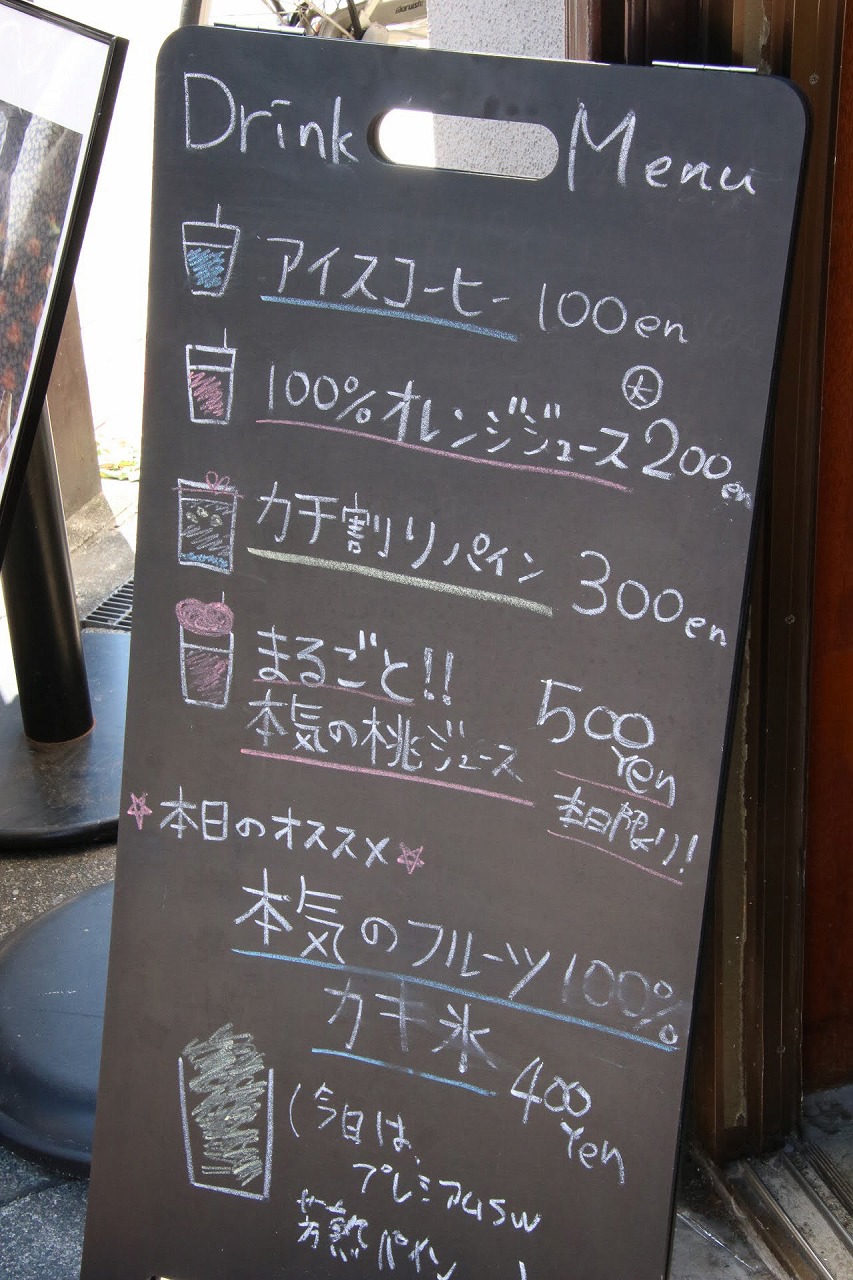 Drink Menu
アイスコーヒー 100en
大
100%オレンジジュース 200en
カチ割りパイン 300en
まるごと!!
本気の桃ジュース 500yen
本日限り!
本日のオススメ
本気のフルーツ100%
カキ氷 400yen
(今日は、
プレミアムSW
芳熟パイン